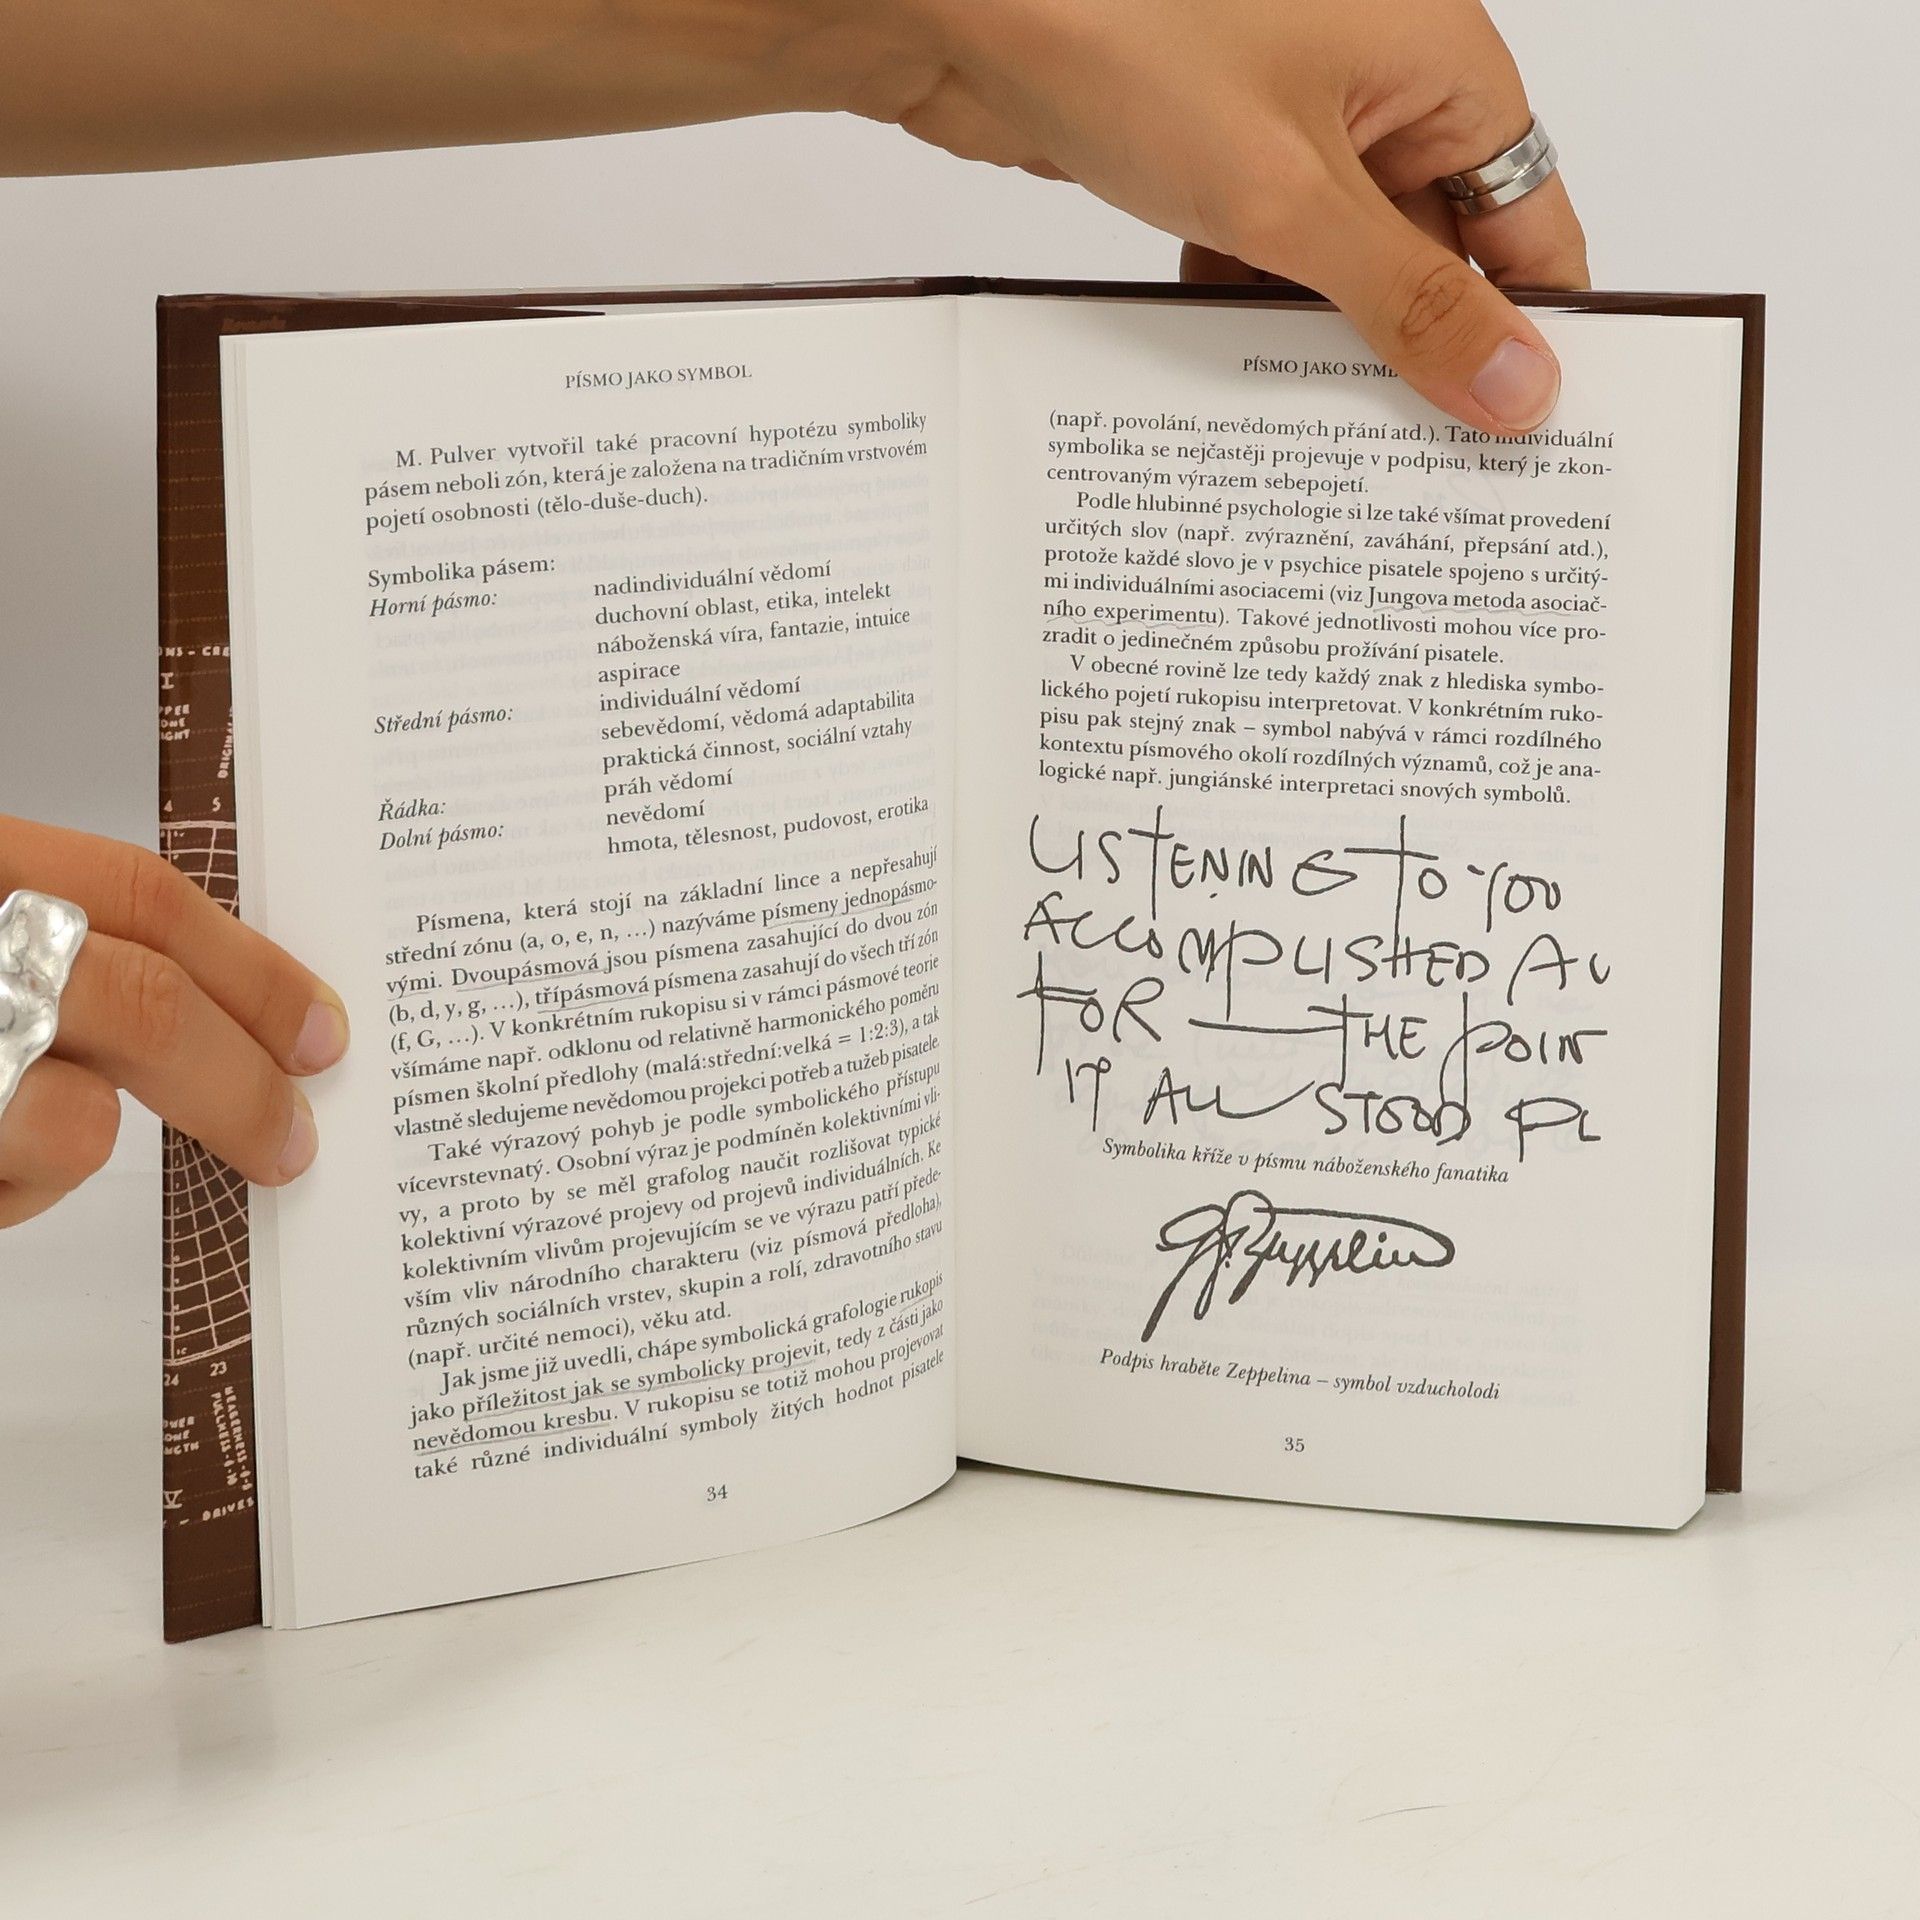 PÍSMO JAKO SYMBOL
M. Pulver vytvořil také pracovní hypotézu symboliky
pásem neboli zón, která je založena na tradičním vrstvovém
pojetí osobnosti (tělo-duše-duch).
Symbolika pásem:
Horní pásmo: nadindividuální vědomí
duchovní oblast, etika, intelekt
náboženská víra, fantazie, intuice
aspirace
Střední pásmo: individuální vědomí
sebevědomí, vědomá adaptabilita
praktická činnost, sociální vztahy
Řádka: práh vědomí
Dolní pásmo: nevědomí
hmota, tělesnost, pudovost, erotika
Písmena, která stojí na základní lince a nepřesahují
střední zónu (a, o, e, n, …) nazýváme písmeny jednopásmo-
vými. Dvoupásmová jsou písmena zasahující do dvou zón
(b, d, y, g, …), třípásmová písmena zasahují do všech tří zón
(f, G, …). V konkrétním rukopisu si v rámci pásmové teorie
všímáme např. odklonu od relativně harmonického poměru
písmen školní předlohy (malá:střední:velká = 1:2:3), a tak
vlastně sledujeme nevědomou projekci potřeb a tužeb pisatele.
Také výrazový pohyb je podle symbolického přístupu
vícevrstevnatý. Osobní výraz je podmíněn kolektivními vli-
vy, a proto by se měl grafolog naučit rozlišovat typické
kolektivní výrazové projevy od projevů individuálních. Ke
kolektivním vlivům projevujícím se ve výrazu patří přede-
vším vliv národního charakteru (viz písmová předloha),
různých sociálních vrstev, skupin a rolí, zdravotního stavu
(např. určité nemoci), věku atd.
Jak jsme již uvedli, chápe symbolická grafologie rukopis
jako příležitost jak se symbolicky projevit, tedy z části jako
nevědomou kresbu. V rukopisu se totiž mohou projevovat
také různé individuální symboly žitých hodnot pisatele
34
PÍSMO JAKO SYMB
(např. povolání, nevědomých přání atd.). Tato individuální
symbolika se nejčastěji projevuje v podpisu, který je zkon-
centrovaným výrazem sebepojetí.
Podle hlubinné psychologie si lze také všímat provedení
určitých slov (např. zvýraznění, zaváhání, přepsání atd.),
protože každé slovo je v psychice pisatele spojeno s určitý-
mi individuálními asociacemi (viz Jungova metoda asociač-
ního experimentu). Takové jednotlivosti mohou více pro-
zradit o jedinečném způsobu prožívání pisatele.
V obecné rovině lze tedy každý znak z hlediska symbo-
lického pojetí rukopisu interpretovat. V konkrétním ruko-
pisu pak stejný znak – symbol nabývá v rámci rozdílného
kontextu písmového okolí rozdílných významů, což je ana-
logické např. jungiánské interpretaci snových symbolů.
LISTENING TO YOU
ACCOMPLISHED AL
FOR THE POIN
IT ALL STOOD PL
Symbolika kříže v písmu náboženského fanatika
Zeppelin
Podpis hraběte Zeppelina – symbol vzducholodi
35
4 5
ORIGINAL
24 23